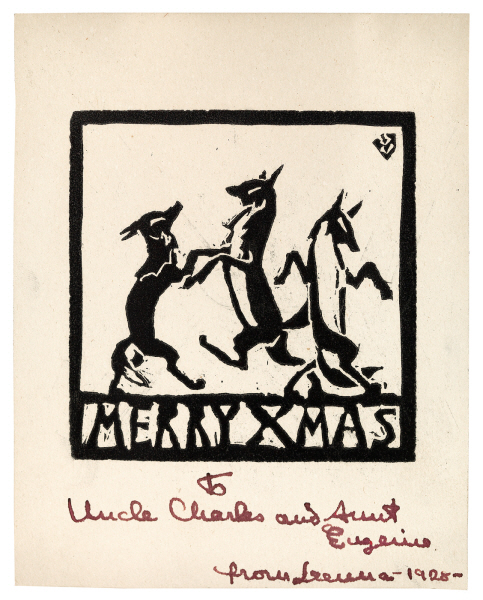 MERRY XMAS
To
Uncle Charles and Aunt
Eugenie
from -1925-